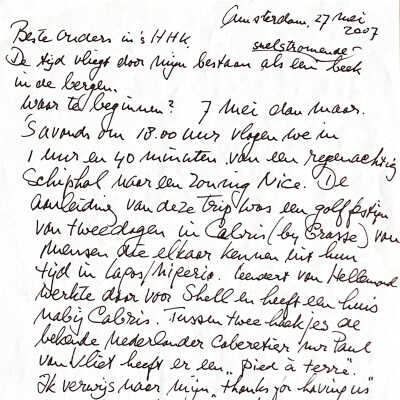 Amsterdam, 27 mei
2007
Beste Ouders in 's HHK.
snelstromende
De tijd vliegt door mijn bestaan als een beek
in de bergen.
Waar te beginnen? 7 mei dan maar.
's avonds om 18.00 uur vlogen we in
1 uur en 40 minuten van een regenachtig
Schiphol naar een zonnig Nice. De
aanleiding van deze trip was een golffestijn
van twee dagen in Cabris (by Grasse) van
mensen die elkaar kennen uit hun
tijd in Lagos/Nigeria. Leendert van Hellemond
werkte daar voor Shell en heeft een huis
nabij Cabris. Tussen twee haakjes de
bekende Nederlander cabaretier mr Paul
van Vliet heeft er een "pied à terre".
Ik verwijs naar mijn "thanks for having us"